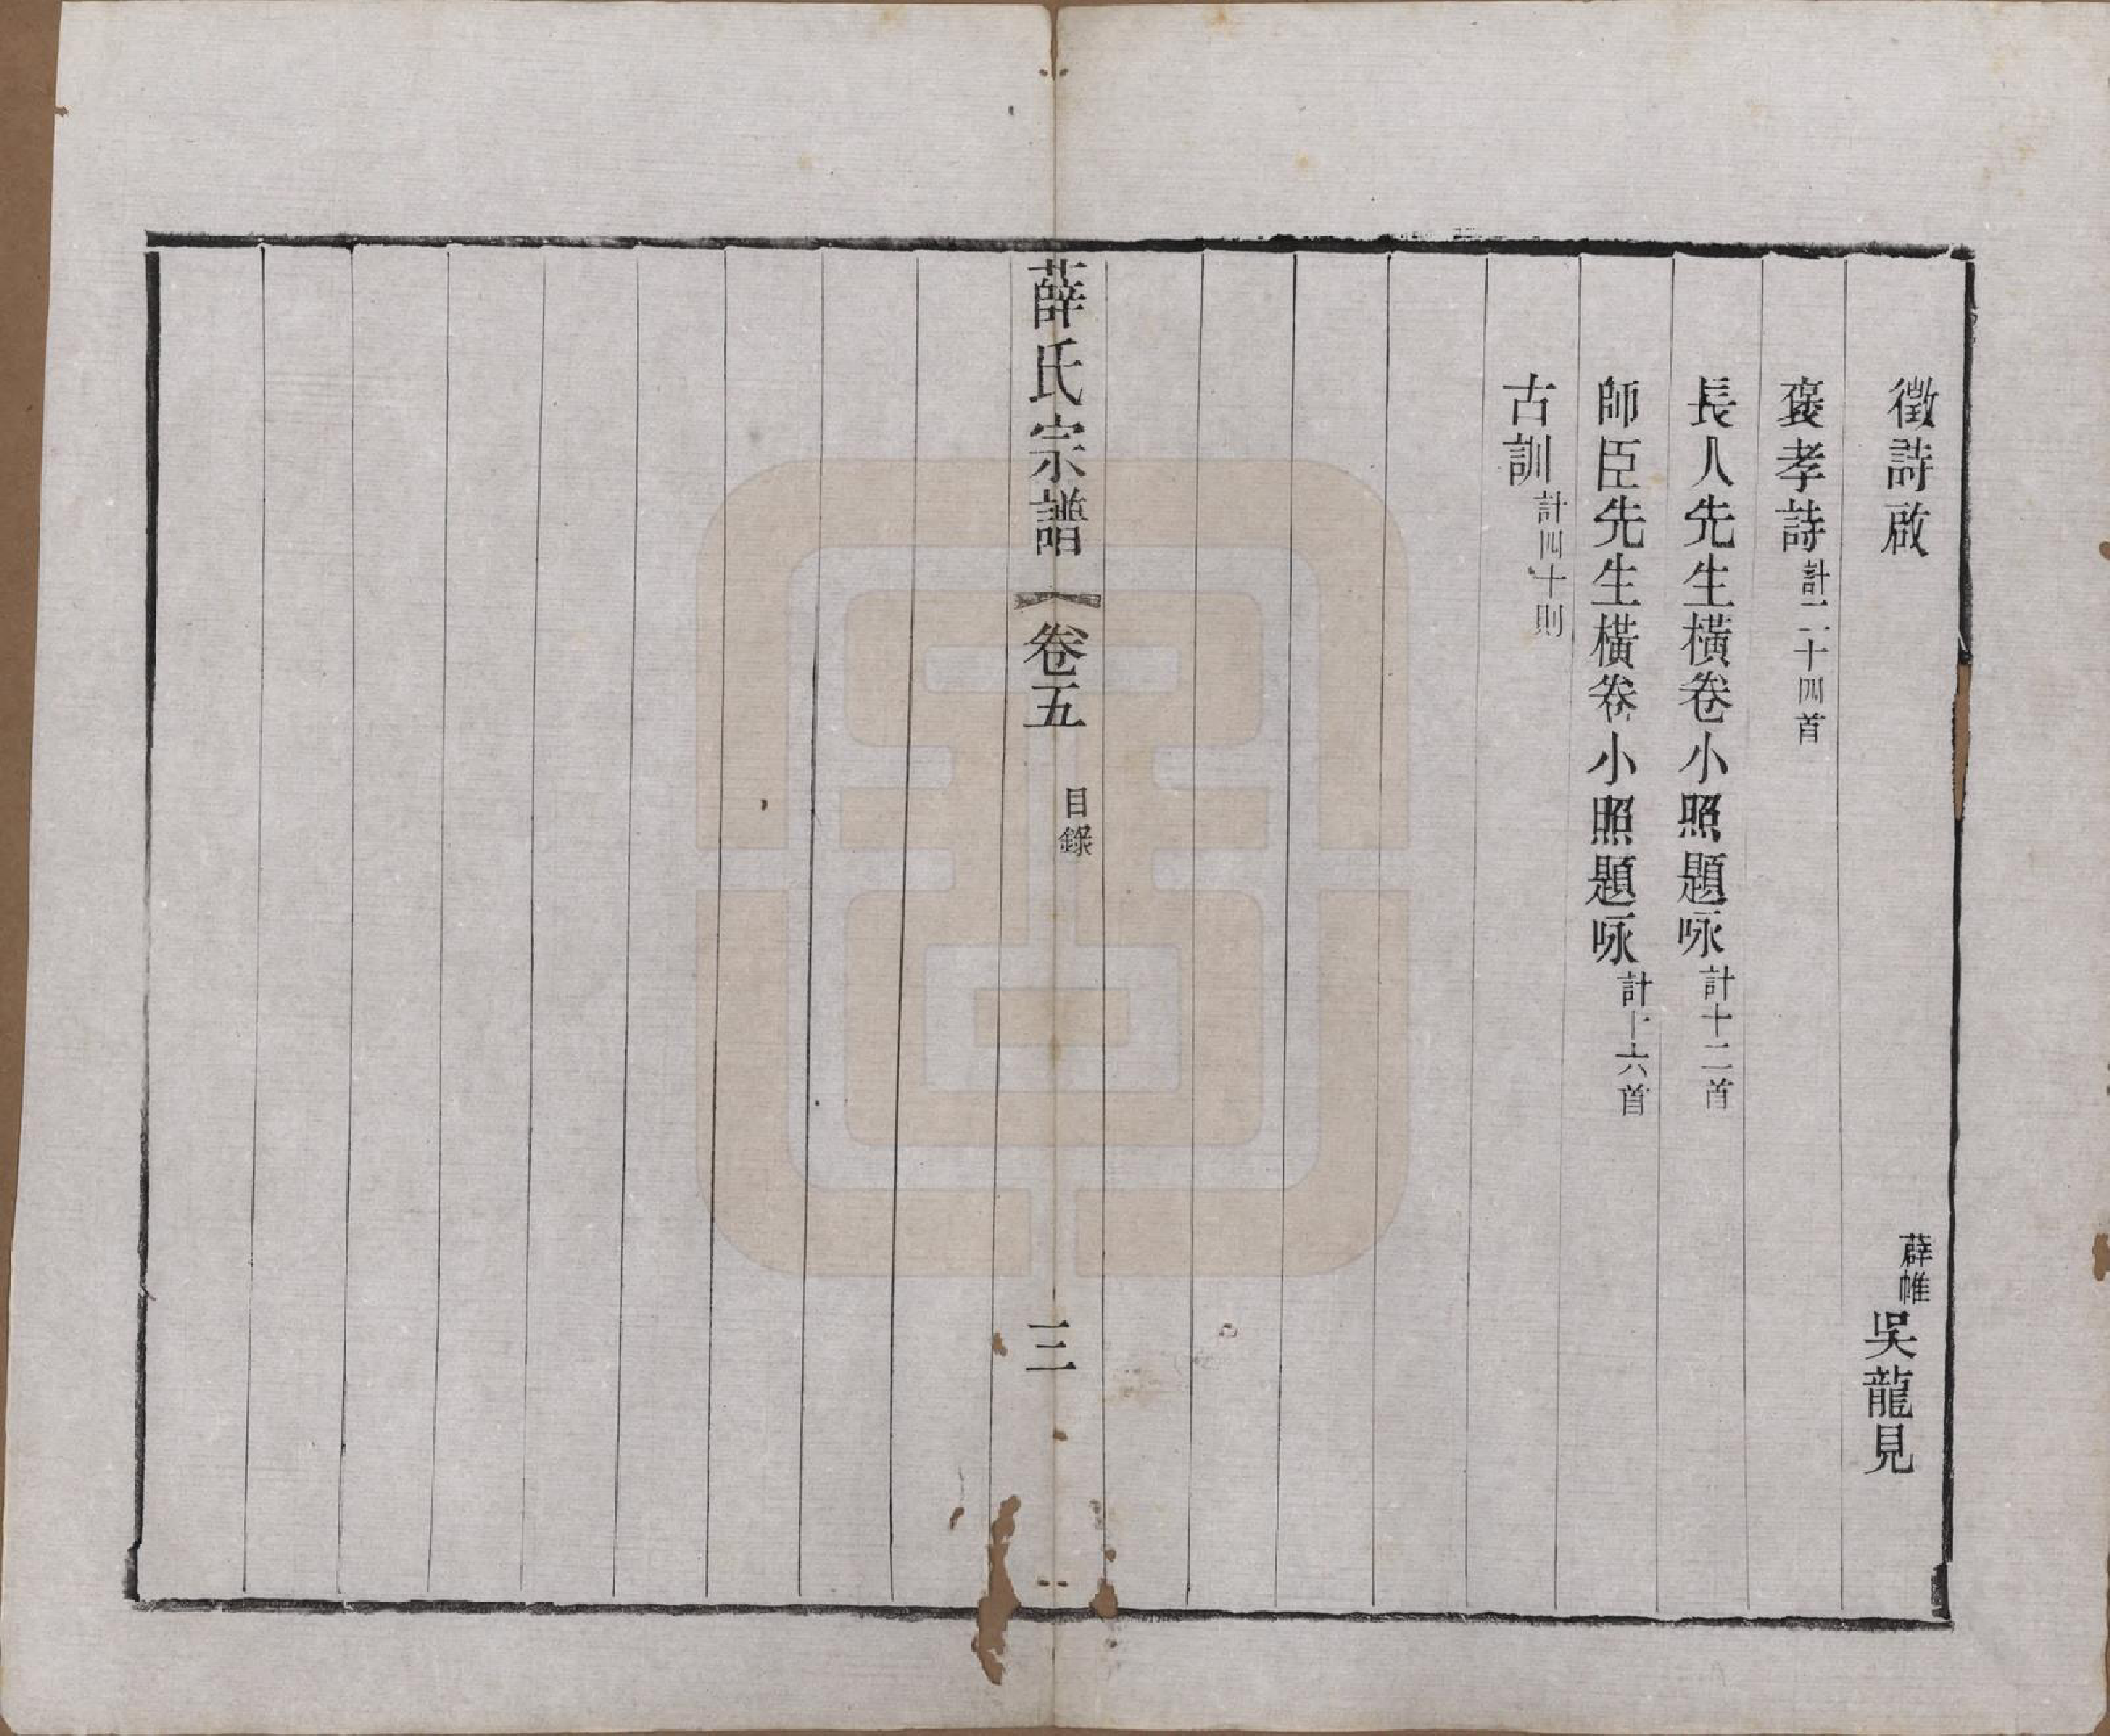 徵詩啟 薜帷 吳龍見
褒孝詩 計二十四首
長人先生橫卷小照題咏 計十二首
師臣先生橫卷小照題咏 計十六首
古訓 計四十則
薛氏宗譜 卷五 目錄 三